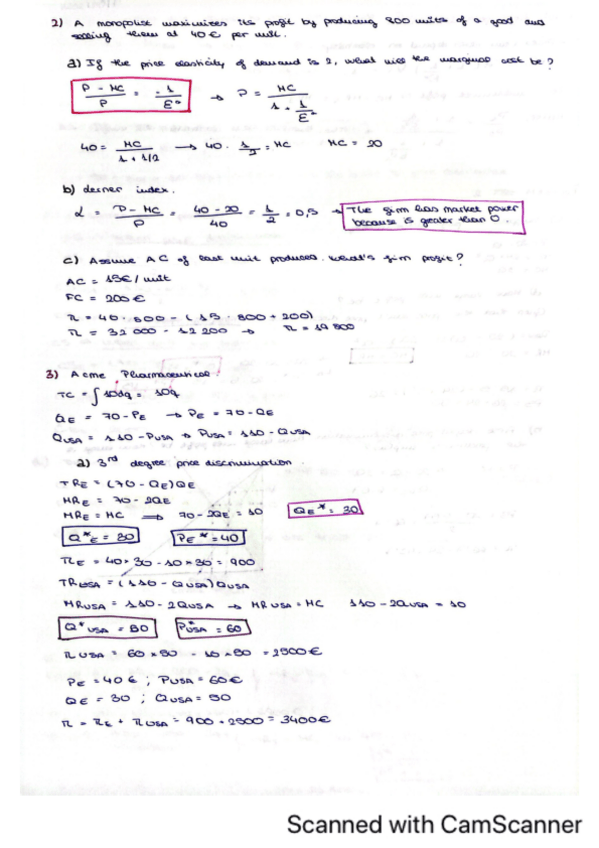 2) A monopolist maximizes its profit by producing 800 units of a good and
selling them at 40€ per unit.
a) If the price elasticity of demand is 2, what will the marginal cost be?
P - MC / P = - 1 / Ed → P = MC / 1 + 1/Ed
40 = MC / 1 + 1/2 → 40 · 1/2 = MC MC = 20
b) Lerner index.
L = P - MC / P = 40 - 20 / 40 = 1/2 = 0,5 → The firm has market power
because is greater than 0.
c) Assume AC of last unit produced. What's firm profit?
AC = 15€/unit
FC = 200€
π = 40 · 800 - (15 · 800 + 200)
π = 32 000 - 12 200 → π = 19 800
3) Acme Pharmaceutical.
TC = ∫10dq = 10q
QE = 70 - PE → PE = 70 - QE
QUSA = 110 - PUSA → PUSA = 110 - QUSA
a) 3rd degree price discrimination.
TRE = (70 - QE)QE
MRE = 70 - 2QE
MRE = MC ⟹ 70 - 2QE = 10 QE* = 30
Q*E = 30 PE* = 40
πE = 40 × 30 - 10 × 30 = 900
TRUSA = (110 - QUSA)QUSA
MRUSA = 110 - 2QUSA → MRUSA = MC 110 - 2QUSA = 10
Q*USA = 50 P*USA = 60
πUSA = 60 × 50 - 10 × 50 = 2500€
PE = 40€ ; PUSA = 60€
QE = 30 ; QUSA = 50
π = πE + πUSA = 900 + 2500 = 3400€
Scanned with CamScanner